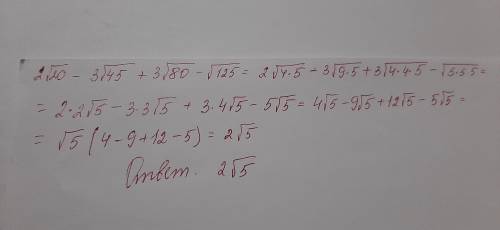 2√20 - 3√45 + 3√80 - √125 = 2√4·5 - 3√9·5 + 3√4·4·5 - √5·5·5 =
= 2·2√5 - 3·3√5 + 3·4√5 - 5√5 = 4√5 - 9√5 + 12√5 - 5√5 =
= √5 (4 - 9 + 12 - 5) = 2√5
Ответ. 2√5